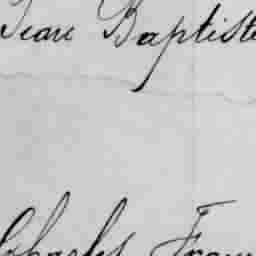 Jean Baptiste
Charles Fran